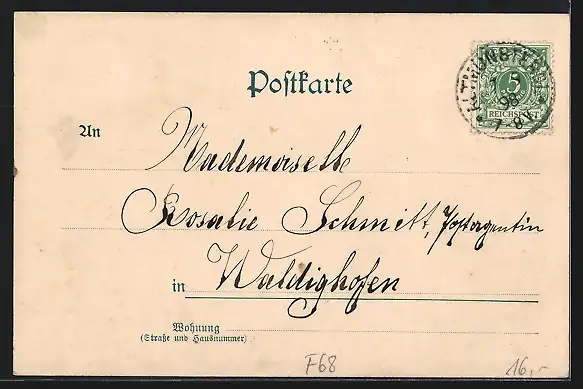 Postkarte
5
REICHSPOST
98
7-8V
An
Mademoiselle
Rosalie Schmitt, Postagentin
in Waldighofen
Wohnung
(Straße und Hausnummer)
F68
16,-